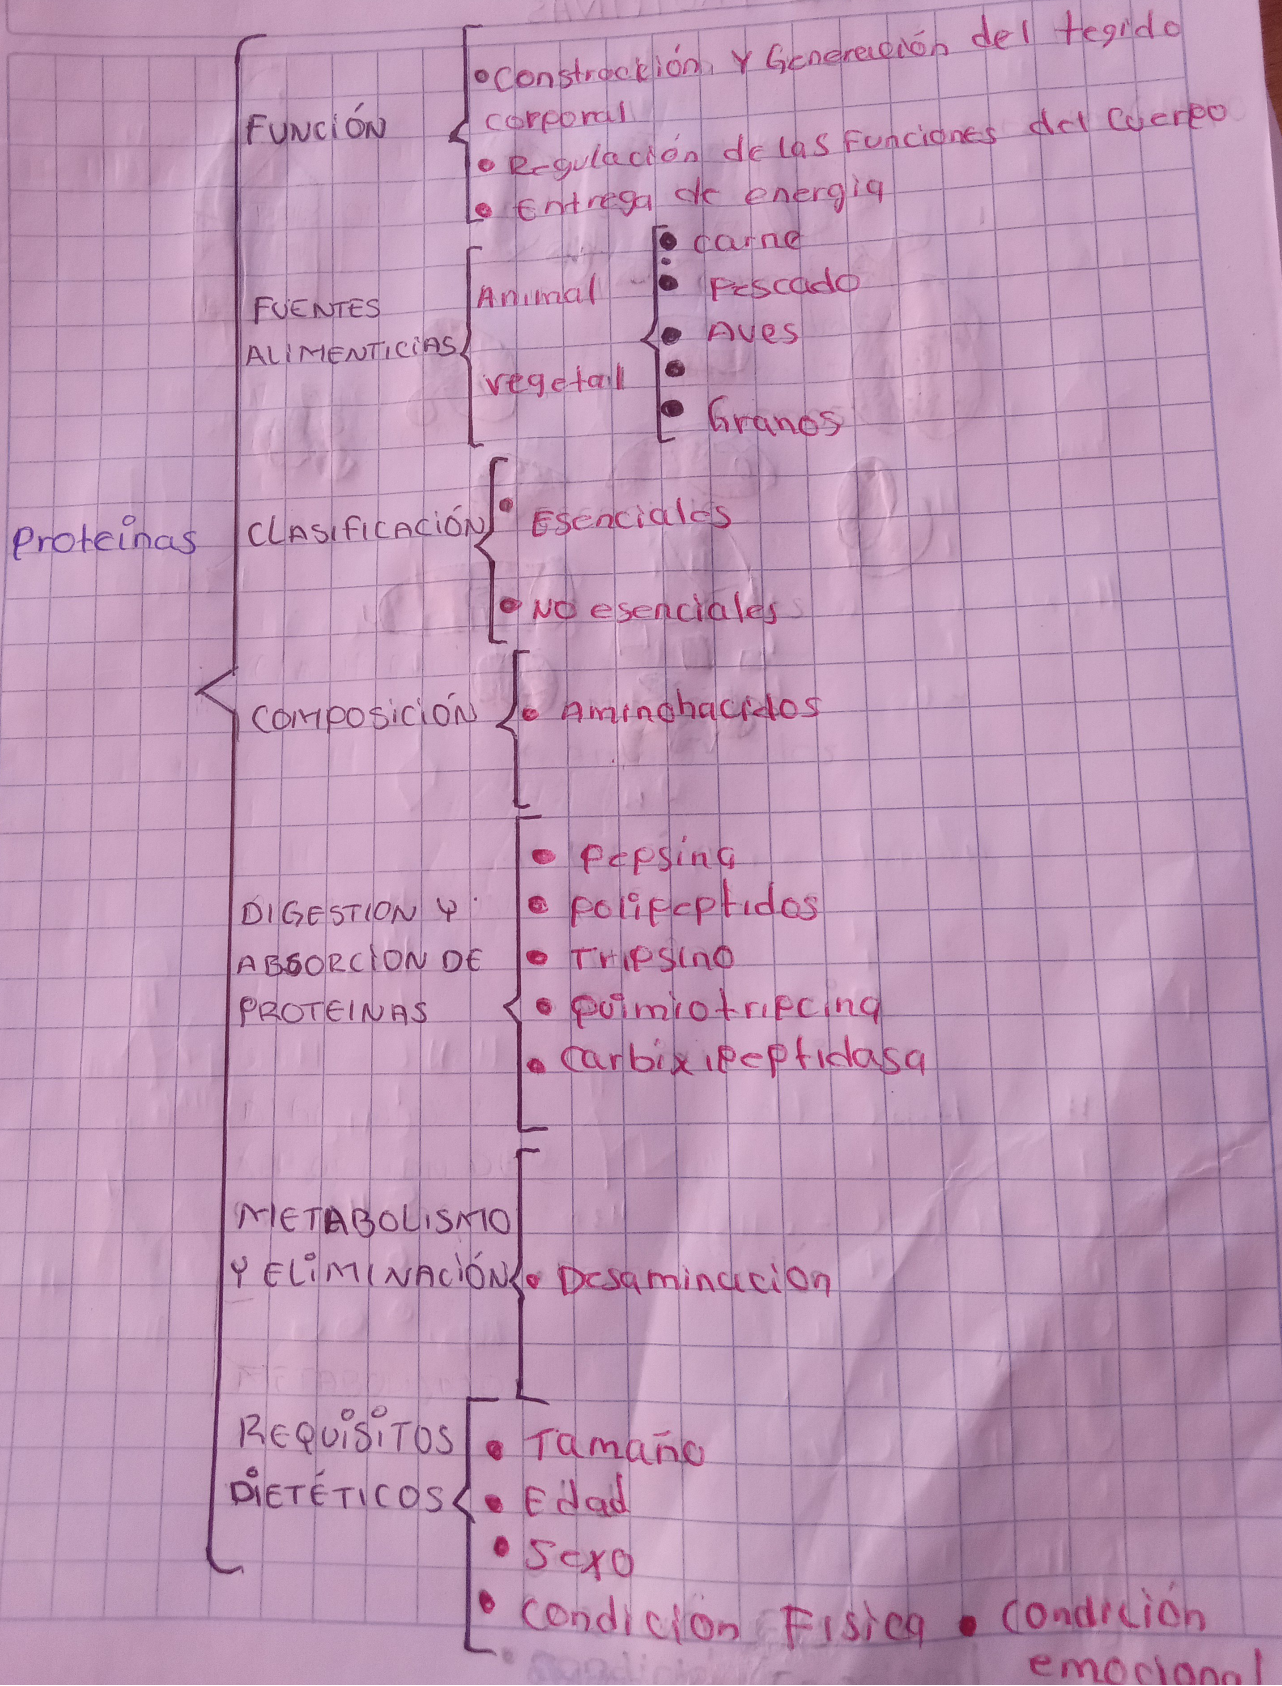 Proteinas
FUNCIÓN
• Construcción y Generación del tegido
corporal
• Regulación de las Funciones del Cuerpo
• Entrega de energia
FUENTES
ALIMENTICIAS
Animal
vegetal
• carne
• Pescado
• Aves
•
• Granos
CLASIFICACIÓN
• Esenciales
• No esenciales
COMPOSICIÓN
• Aminohacidos
DIGESTION Y
ABSORCION DE
PROTEINAS
• Pepsina
• Polipeptidos
• Tripsina
• Quimiotripcina
• Carbixipeptidasa
METABOLISMO
Y ELIMINACIÓN
• Desaminacion
REQUISITOS
DIETÉTICOS
• Tamaño
• Edad
• Sexo
• Condición Fisica • Condición
emocional